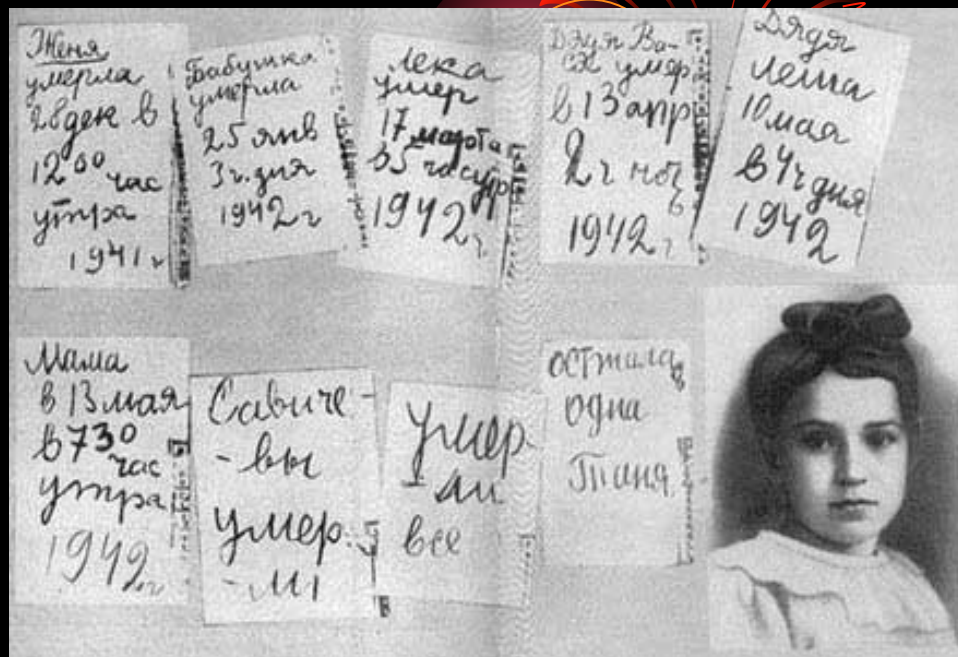 Женя
умерла
28 дек в
12 00 час
утра
1941 г
Бабушка
умерла
25 янв
3 ч. дня
1942 г
Лека
умер
17 марта
в 5 час утр
1942 г.
Дядя Ва-
ся умер
в 13 апр
2 ч ноч
1942 г
Дядя
Леша
10 мая
в 4 ч дня
1942
Мама
в 13 мая
в 7 30
час
утра
1942 г
Савиче-
-вы
умер
-ли
умер-
-ли
все
осталась
одна
Таня